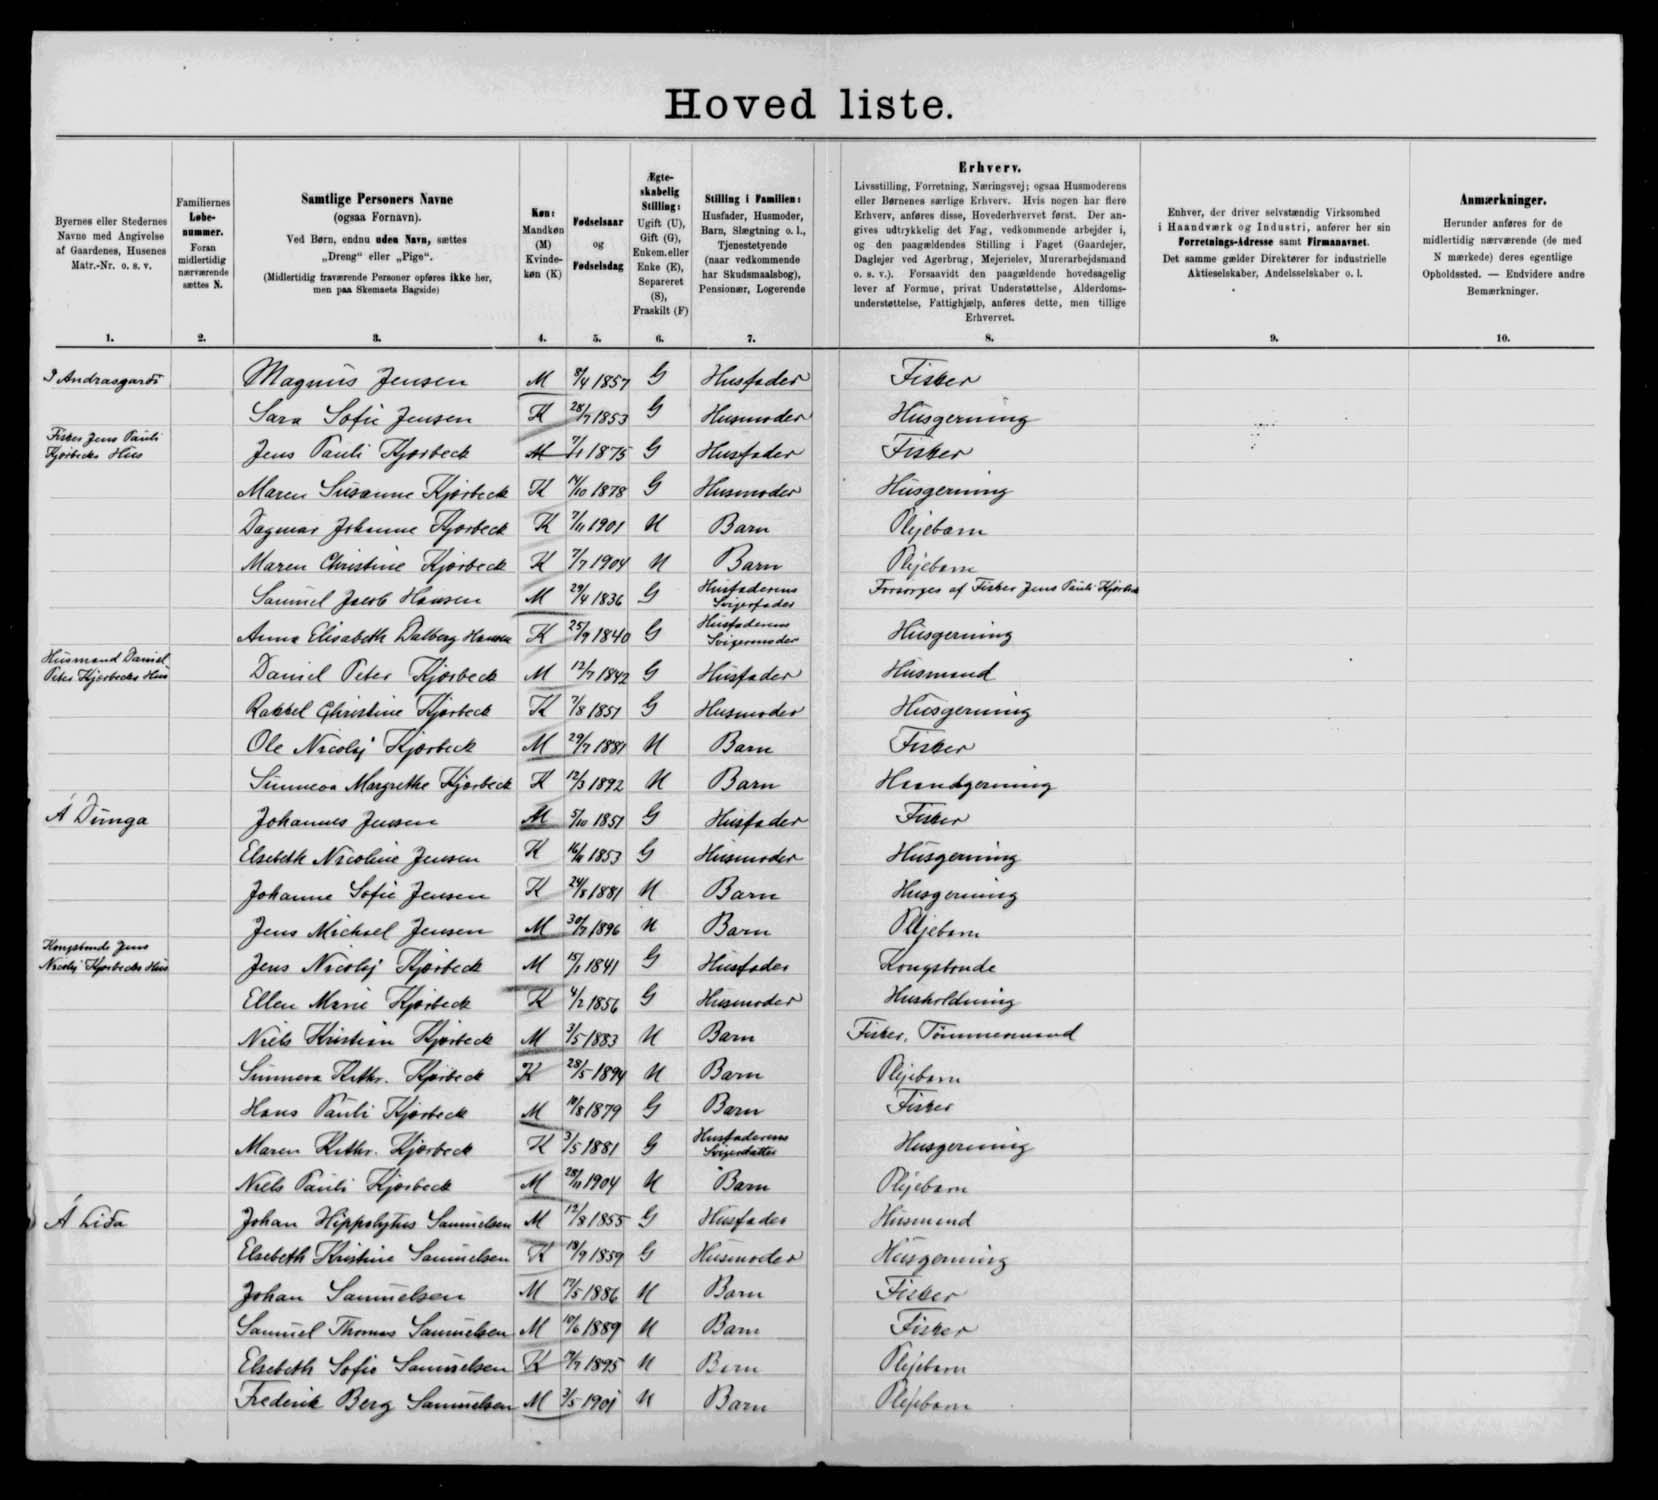 Hoved liste.
Byernes eller Stedernes
Navne med Angivelse
af Gaardenes, Husenes
Matr.-Nr. o. s. v.
1.
Familiernes
Løbe-
nummer.
Foran
midlertidig
nærværende
sættes N.
2.
Samtlige Personers Navne
(ogsaa Fornavn).
Ved Børn, endnu uden Navn, sættes
„Dreng“ eller „Pige“.
(Midlertidig fraværende Personer opføres ikke her,
men paa Skemaets Bagside)
3.
Køn:
Mandkøn
(M)
Kvinde-
køn (K)
4.
Fødselsaar
og
Fødselsdag
5.
Ægte-
skabelig
Stilling:
Ugift (U),
Gift (G),
Enkem. eller
Enke (E),
Separeret
(S),
Fraskilt (F)
6.
Stilling i Familien:
Husfader, Husmoder,
Barn, Slægtning o. l.,
Tjenestetyende
(naar vedkommende
har Skudsmaalsbog),
Pensionær, Logerende
7.
Erhverv.
Livsstilling, Forretning, Næringsvej; ogsaa Husmoderens
eller Børnenes særlige Erhverv. Hvis nogen har flere
Erhverv, anføres disse, Hovederhvervet først. Der an-
gives udtrykkelig det Fag, vedkommende arbejder i,
og den paagældendes Stilling i Faget (Gaardejer,
Daglejer ved Agerbrug, Mejerielev, Murerarbejdsmand
o. s. v.). Forsaavidt den paagældende hovedsagelig
lever af Formue, privat Understøttelse, Alderdoms-
understøttelse, Fattighjælp, anføres dette, men tillige
Erhvervet.
8.
Enhver, der driver selvstændig Virksomhed
i Haandværk og Industri, anfører her sin
Forretnings-Adresse samt Firmanavnet.
Det samme gælder Direktører for industrielle
Aktieselskaber, Andelsselskaber o. l.
9.
Anmærkninger.
Herunder anføres for de
midlertidig nærværende (de med
N mærkede) deres egentlige
Opholdssted. — Endvidere andre
Bemærkninger.
10.
I Andrasgardi Magnus Jensen M 8/4 1857 G Husfader Fisker
Sara Sofie Jensen K 28/7 1853 G Husmoder Husgerning
Fisker Jens Pauli
Kjørbecks Hus Jens Pauli Kjørbeck M 7/1 1875 G Husfader Fisker
Maren Susanne Kjørbeck K /10 1878 G Husmoder Husgerning
Dagmar Johanne Kjørbeck K 7/11 1901 U Barn Plejebarn
Maren Christine Kjørbeck K 7/7 1904 U Barn Plejebarn
Samuel Jacob Hansen M 29/4 1836 G Husfaderens Svigerfader Forsørges af Fisker Jens Pauli Kjørbeck
Anna Elisabeth Dalberg Hansen K 25/9 1840 G Husfaderens Svigermoder Husgerning
Husmand Daniel
Peter Kjørbecks Hus Daniel Peter Kjørbeck M 12/7 1842 G Husfader Husmand
Rakkel Christine Kjørbeck K 7/8 1851 G Husmoder Husgerning
Ole Nicolij Kjørbeck M 29/7 1881 U Barn Fisker
Sunneva Margrethe Kjørbeck K 12/3 1892 U Barn Haandgerning
Á Dunga Johannes Jensen M 5/10 1851 G Husfader Fisker
Elsebeth Nicoline Jensen K 16/11 1853 G Husmoder Husgerning
Johanne Sofie Jensen K 24/8 1881 U Barn Husgerning
Jens Michael Jensen M 30/7 1896 U Barn Plejebarn
Kongsbonde Jens
Nicolij Kjørbecks Hus Jens Nicolij Kjørbeck M 15/1 1841 G Husfader Kongsbonde
Ellen Marie Kjørbeck K 4/2 1856 G Husmoder Husholdning
Niels Kristian Kjørbeck M 3/5 1883 U Barn Fisker, Tømmermand
Sunneva Kathr. Kjørbeck K 28/5 1894 U Barn Plejebarn
Hans Pauli Kjørbeck M 10/8 1879 G Barn Fisker
Maren Kathr. Kjørbeck K 3/5 1881 G Husfaderens Svigerdatter Husgerning
Niels Pauli Kjørbeck M 28/11 1904 U Barn Plejebarn
Á Lida Johan Hippolytus Samuelsen M 12/8 1855 G Husfader Husmand
Elsebeth Kristine Samuelsen K 18/9 1859 G Husmoder Husgerning
Johan Samuelsen M 17/5 1886 U Barn Fisker
Samuel Thomas Samuelsen M 10/6 1889 U Barn Fisker
Elsebeth Sofie Samuelsen K /7 1895 U Barn Plejebarn
Frederik Berg Samuelsen M 3/5 1901 U Barn Plejebarn